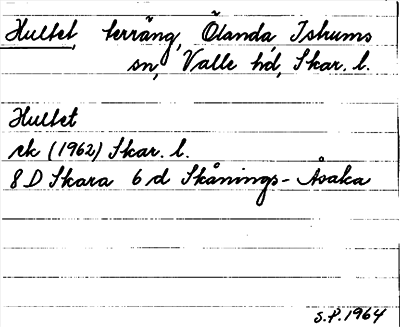 Hultet, terräng, Ölanda, Istrums
sn, Valle hd, Skar. l.
Hultet
rk (1962) Skar. l.
8 D Skara 6 d Skånings-Åsaka
S.P. 1964